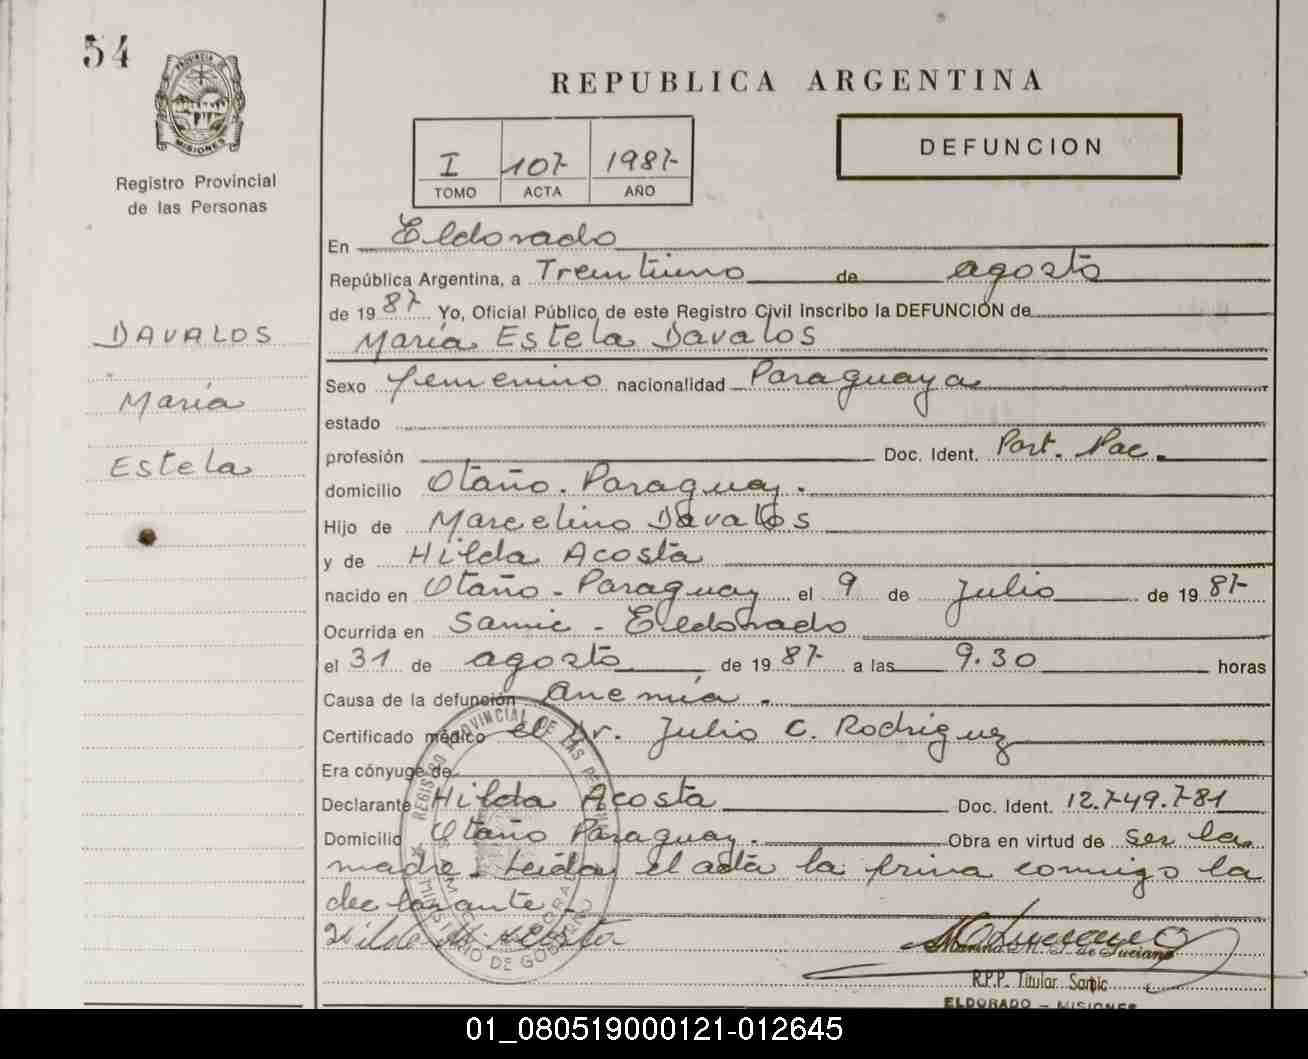 54
PROVINCIA DE
MISIONES
Registro Provincial
de las Personas
DAVALOS
María
Estela
REPUBLICA ARGENTINA
I 107 1987
TOMO ACTA AÑO
DEFUNCION
En Eldorado
República Argentina, a Treintiuno de agosto
de 1987 Yo, Oficial Público de este Registro Civil Inscribo la DEFUNCIÓN de
María Estela Davalos
Sexo femenino nacionalidad Paraguaya
estado
profesión Doc. Ident. Part. Nac.
domicilio Otaño. Paraguay.
Hijo de Marcelino Davalos
y de Hilda Acosta
nacido en Otaño - Paraguay el 9 de Julio de 1987
Ocurrida en Samic - Eldorado
el 31 de agosto de 1987 a las 9.30 horas
Causa de la defunción Anemia.
Certificado médico el Dr. Julio C. Rodriguez
Era cónyuge de
Declarante Hilda Acosta Doc. Ident. 12.749.781
Domicilio Otaño Paraguay. Obra en virtud de ser la
madre. Leida el acta la firma conmigo la
declarante.
Hilda Acosta
de Luciano
R.P.P. Titular Samic
ELDORADO - MISIONES
REGISTRO PROVINCIAL DE LAS PERSONAS
MINISTERIO DE GOBIERNO
01_080519000121-012645